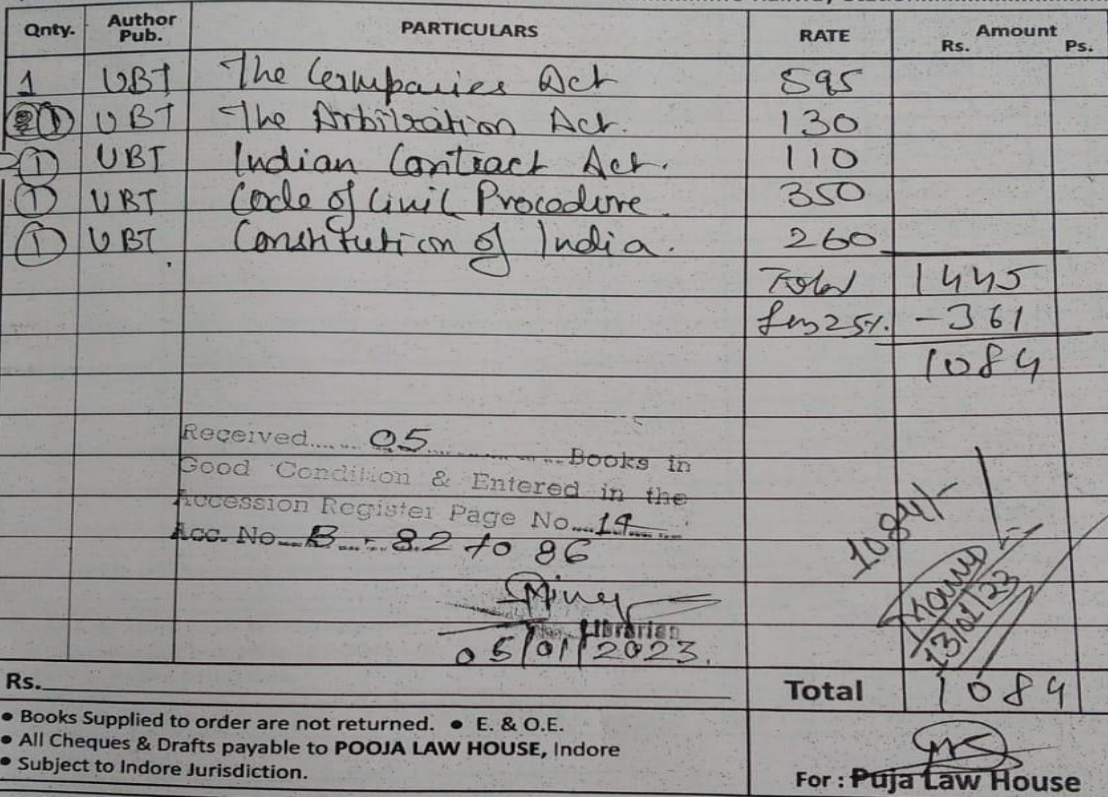 Qnty. Author Pub. PARTICULARS RATE Amount Rs. Ps.
1 UBT The Companies Act 595
1 UBT The Arbitration Act. 130
1 UBT Indian Contract Act. 110
1 UBT Code of Civil Procedure. 350
1 UBT Constitution of India. 260
Total 1445
Less 25%. -361
1084
Received....... 05 ............Books in
Good Condition & Entered in the
Accession Register Page No....14......
Acc. No...B...-82 to 86
1084/-
Librarian
05/01/2023.
13/01/23
Rs.
Total 1084
• Books Supplied to order are not returned. • E. & O.E.
• All Cheques & Drafts payable to POOJA LAW HOUSE, Indore
• Subject to Indore Jurisdiction.
For : Puja Law House